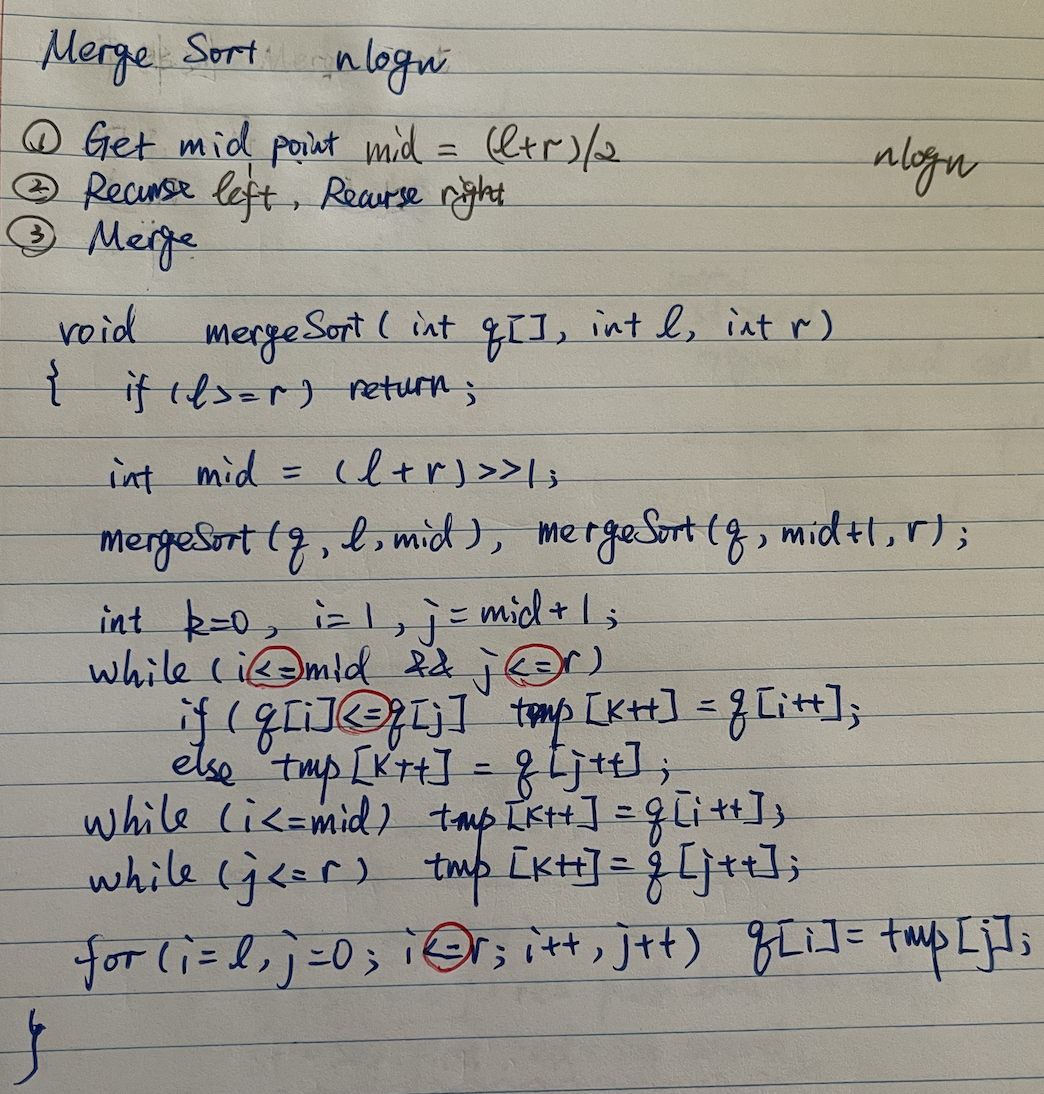 Merge Sort nlogn
① Get mid point mid = (l+r)/2 nlogn
② Recurse left, Recurse right
③ Merge
void mergeSort( int q[], int l, int r )
{ if (l>=r) return;
int mid = (l+r)>>1;
mergeSort(q, l, mid), mergeSort(q, mid+1, r);
int k=0, i=1, j=mid+1;
while (i<=mid && j<=r)
if (q[i]<=q[j] tmp[k++] = q[i++];
else tmp[k++] = q[j++];
while (i<=mid) tmp[k++]=q[i++];
while (j<=r) tmp[k++]=q[j++];
for(i=l, j=0; i<=r; i++, j++) q[i]=tmp[j];
}